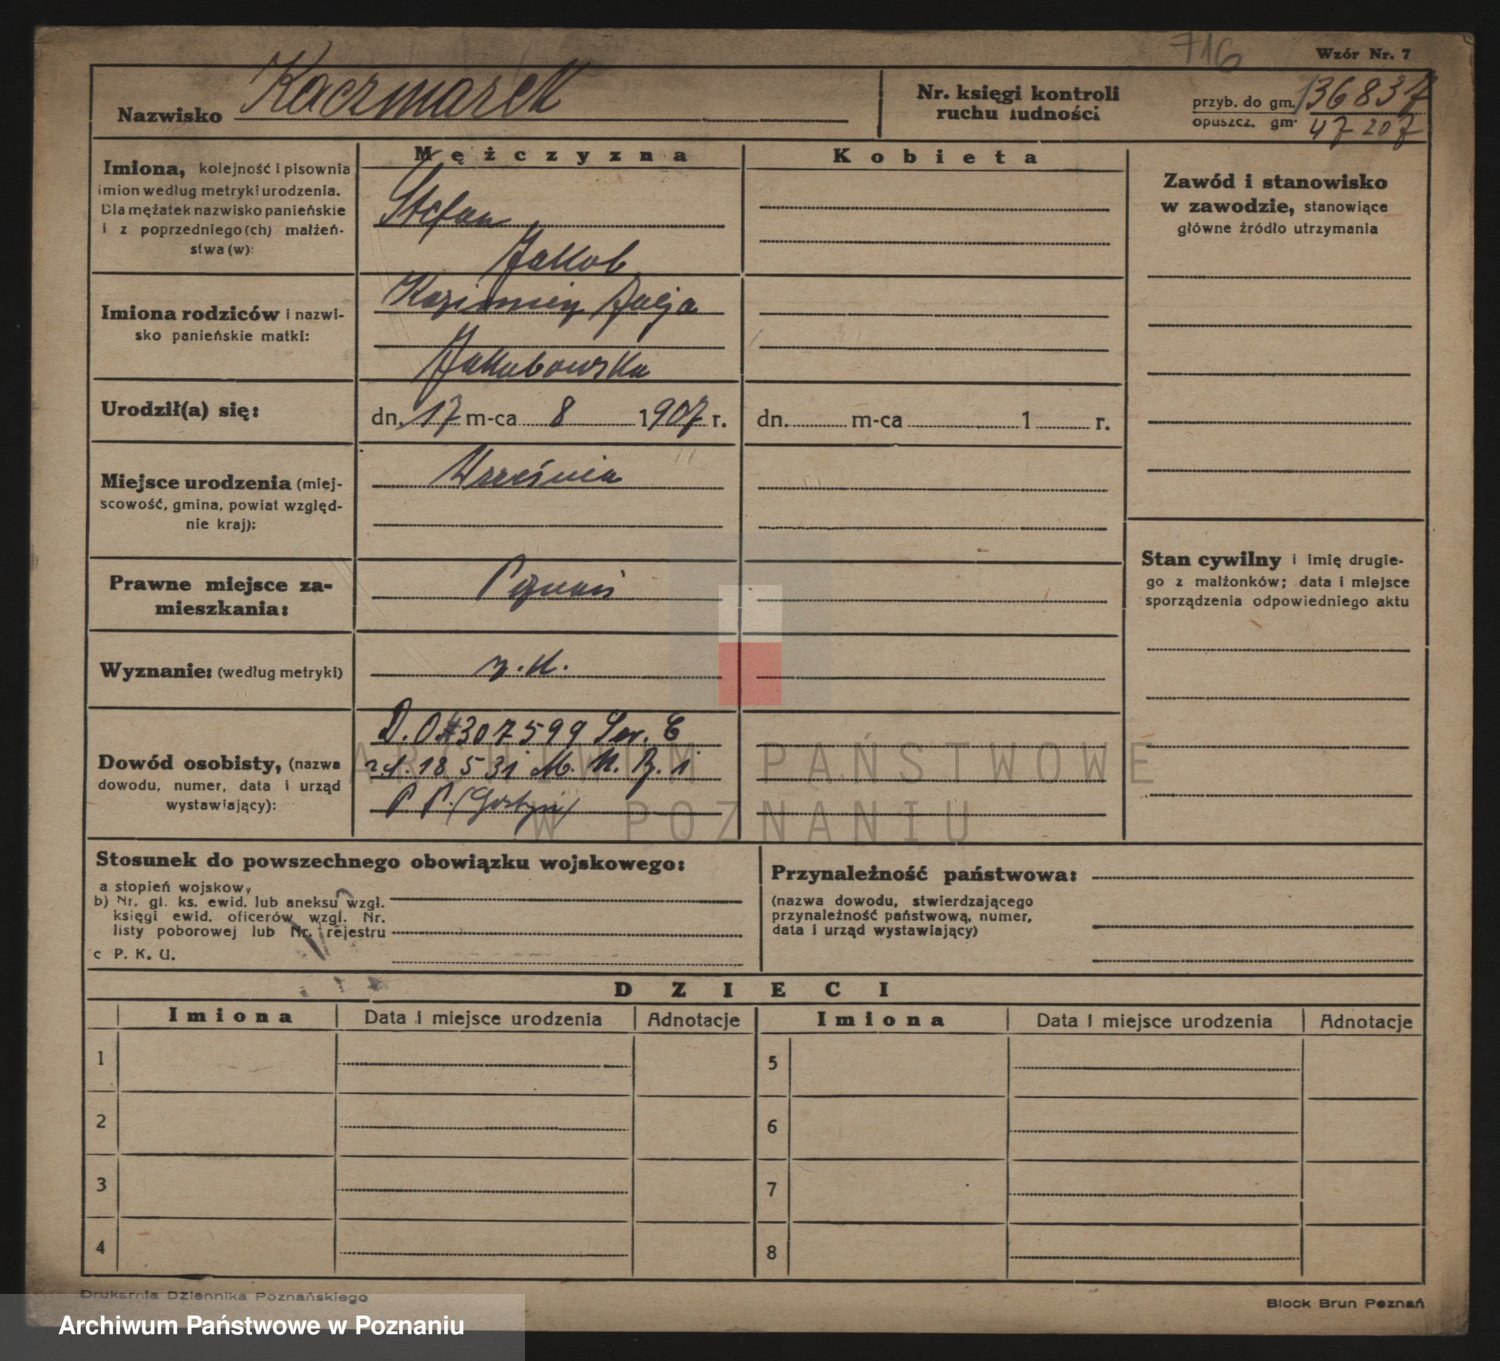 716
Wzór Nr. 7
Nazwisko Kaczmarek
Nr. księgi kontroli
ruchu ludności
przyb. do gm. 136837
opuszcz. gm. 47207
Imiona, kolejność i pisownia
imion według metryki urodzenia.
Dla mężatek nazwisko panieńskie
i z poprzedniego(ch) małżeń-
stwa(w):
Mężczyzna
Stefan
Jakob
Kobieta
Zawód i stanowisko
w zawodzie, stanowiące
główne źródło utrzymania
Imiona rodziców i nazwi-
sko panieńskie matki:
Kazimierz Julja
Jakubowska
Urodził(a) się:
dn. 17 m-ca 8 1907 r.
dn. m-ca 1 r.
Miejsce urodzenia (miej-
scowość, gmina, powiat względ-
nie kraj):
Września
Stan cywilny i imię drugie-
go z małżonków; data i miejsce
sporządzenia odpowiedniego aktu
Prawne miejsce za-
mieszkania:
Poznań
Wyznanie: (według metryki)
rz. k.
Dowód osobisty, (nazwa
dowodu, numer, data i urząd
wystawiający):
D. O. 307599 Ser. C
18 5 31 M. K. R. i
P. P. (Gostyń)
ARCHIWUM PAŃSTWOWE
W POZNANIU
Stosunek do powszechnego obowiązku wojskowego:
a stopień wojskowy,
b) Nr. gl. ks. ewid. lub aneksu wzgl.
księgi ewid. oficerów wzgl. Nr.
listy poborowej lub Nr. rejestru
c P. K. U.
Przynależność państwowa:
(nazwa dowodu, stwierdzającego
przynależność państwową, numer,
data i urząd wystawiający)
DZIECI
Imiona Data i miejsce urodzenia Adnotacje Imiona Data i miejsce urodzenia Adnotacje
1 5
2 6
3 7
4 8
Drukarnia Dziennika Poznańskiego
Block Brun Poznań
Archiwum Państwowe w Poznaniu